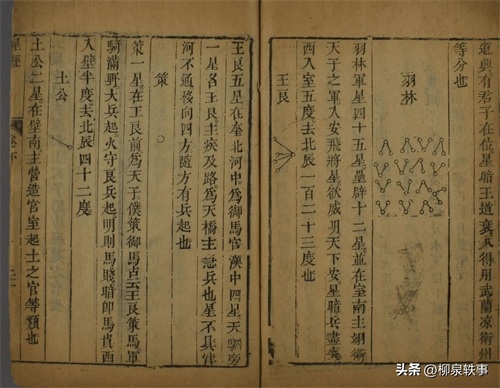 道興有君子在位星暗王道衰小人得用武蘭凉衛州
等分也
羽林
羽林軍星四十五星壘辟十二星並在室南主翊衛
天子之軍入安飛將星欲威明天下安星暗兵盡失
西入室五度去北辰一百二十三度也
王良
王良五星在奎北河中為御馬官漢中四星天駟旁
一星名王良主疾及路為天橋主急兵也星不具津
河不通移向四方隨方有兵起也
策
策一星在王良前為天子僕策御馬占云王良策馬軍
騎滿野大兵起火守良兵起明則馬賤暗即馬貴西
入壁半度去北辰四十二度
土公
土公二星在壁南主營造官室起土之官等類也
星經
卷下
頭条 @柳泉轶事